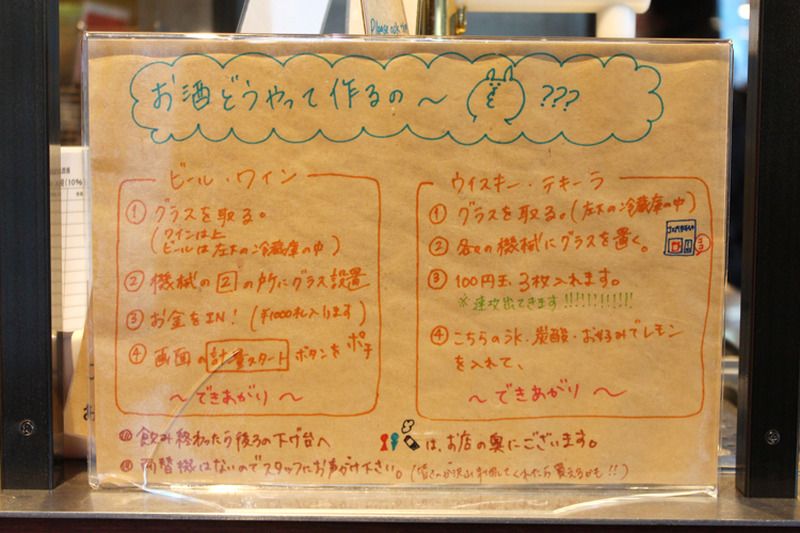 Please ask
お酒どうやって作るの〜 ???
(10%)
ビール・ワイン
① グラスを取る。
(ワインは上
ビールは左下の冷蔵庫の中)
② 機械の の所にグラス設置
③ お金をIN! (¥1000札入ります)
④ 画面の 計量スタート ボタンをポチ
〜できあがり〜
ウイスキー・テキーラ
① グラスを取る。(左下の冷蔵庫の中)
② 各々の機械にグラスを置く。
③ 100円玉、3枚入れます。
※速攻出てきます!!!!!!!!!!!
④ こちらの氷・炭酸・お好みでレモン
を入れて、
〜できあがり〜
飲み終わったら後ろの下げ台へ
は、お店の奥にございます。
両替機はないのでスタッフにお声がけ下さい。(皆さんが沢山利用してくれたら買えるかも!!)